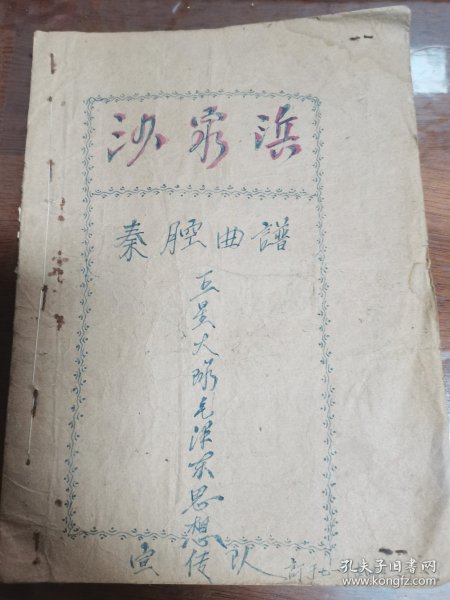 沙家浜
秦腔曲谱
五星大队毛泽东思想
宣传队
孔夫子旧书网
www.kongfz.com